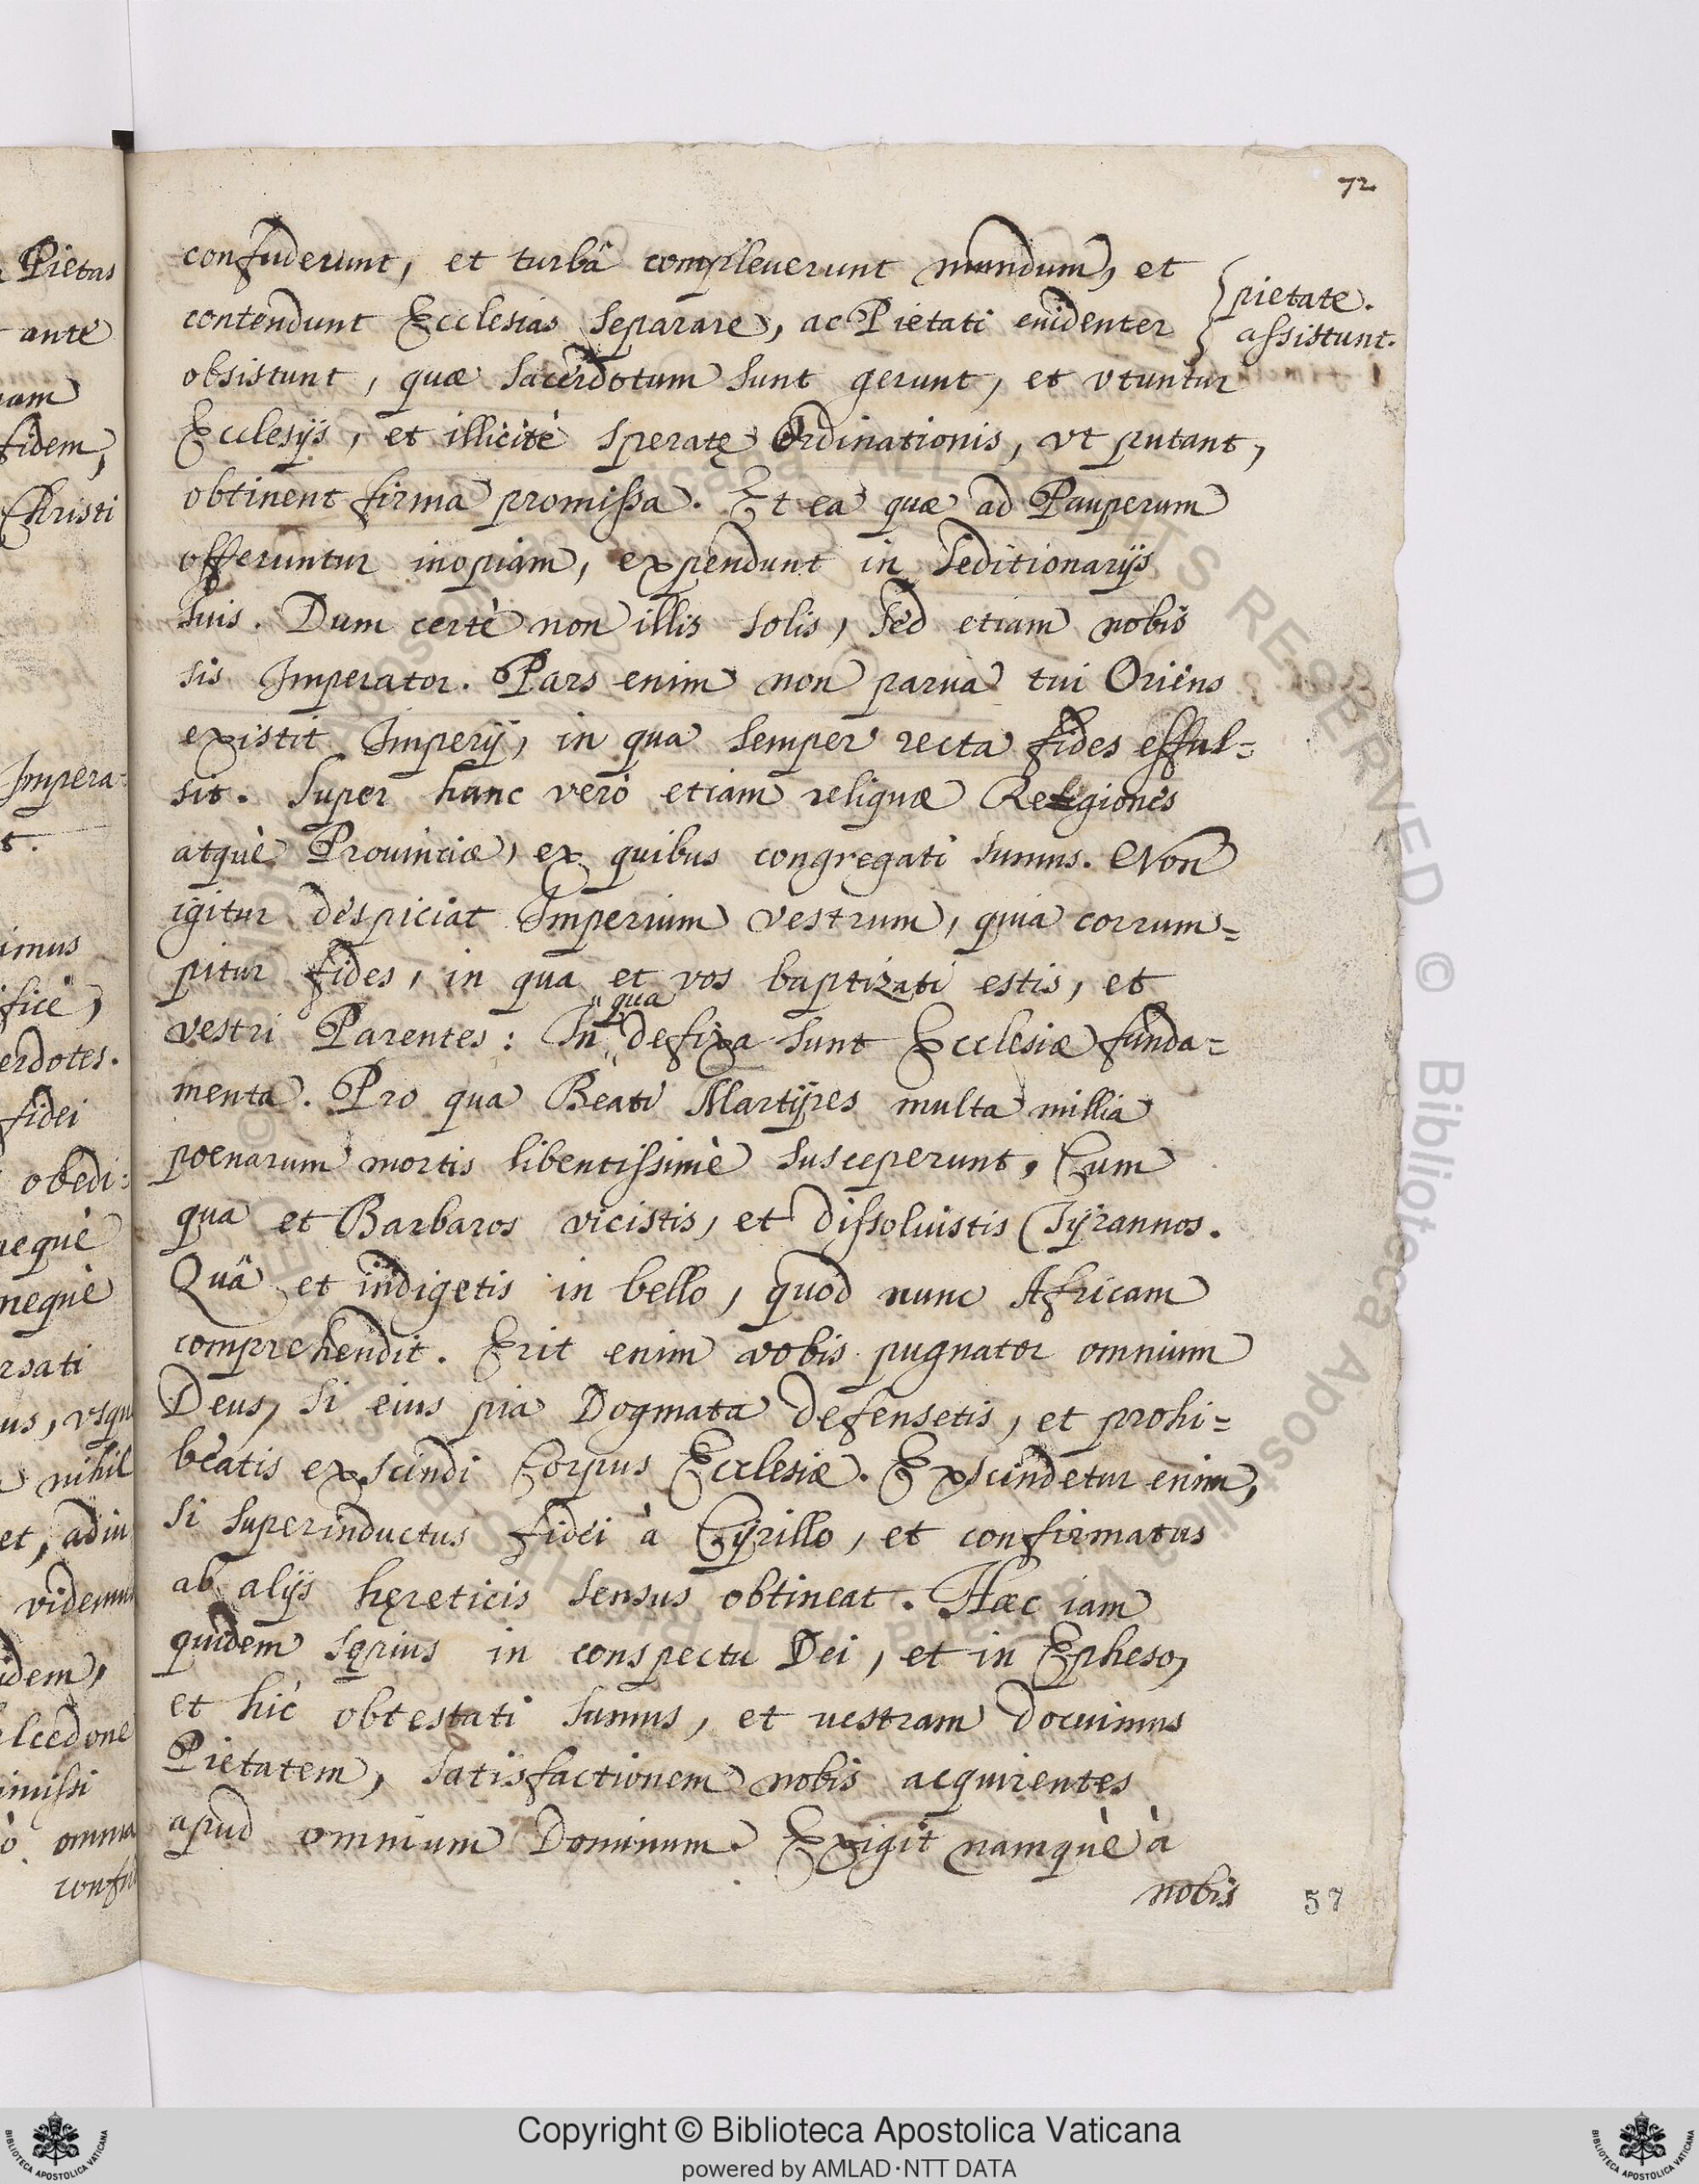 72
confuderunt, et turbâ compleuerunt mundum, et
contendunt Ecclesias separare, ac Pietati euidenter
{pietate.
{assistunt.
obsistunt, quæ sacerdotum sunt gerunt, et vtuntur
Ecclesijs, et illicitè speratę Ordinationis, vt putant,
obtinent firma promissa. Et ea quæ ad Pauperum
offeruntur inopiam, expendunt in seditionarijs
suis. Dum certè non illis solis, sed etiam nobis
sis Imperator. Pars enim non parua tui Oriens
existit Imperij, in qua semper recta fides efful=
sit. Super hanc verò etiam reliquæ Religiones
atquè Prouinciæ, ex quibus congregati sumus. Non
igitur despiciat Imperium vestrum, quia corrum=
pitur fides, in qua et vos baptizati estis, et
vestri Parentes: In qua defixa sunt Ecclesiæ funda=
menta. Pro qua Beati Martÿres multa millia
poenarum mortis libentissimè susceperunt, Cum
qua et Barbaros vicistis, et dissoluistis Tÿrannos.
Quâ et indigetis in bello, quod nunc Africam
comprehendit. Erit enim vobis pugnator omnium
Deus, si eius pia Dogmata defensetis, et prohi=
beatis exscindi Corpus Ecclesiæ. Exscindetur enim,
si superinductus fidei à Cÿrillo, et confirmatus
ab alijs hęreticis sensus obtineat. Hæc iam
quidem sępius in conspectu Dei, et in Epheso,
et hic obtestati sumus, et uestram docuimus
Pietatem, satisfactionem nobis acquirentes
apud omnium Dominum. Exigit namquè à
nobis
57
Pietas
ante
fidem,
Christi
Impera=
erdotes.
fidei
obedi=
nequè
nihil
Copyright © Biblioteca Apostolica Vaticana
powered by AMLAD·NTT DATA